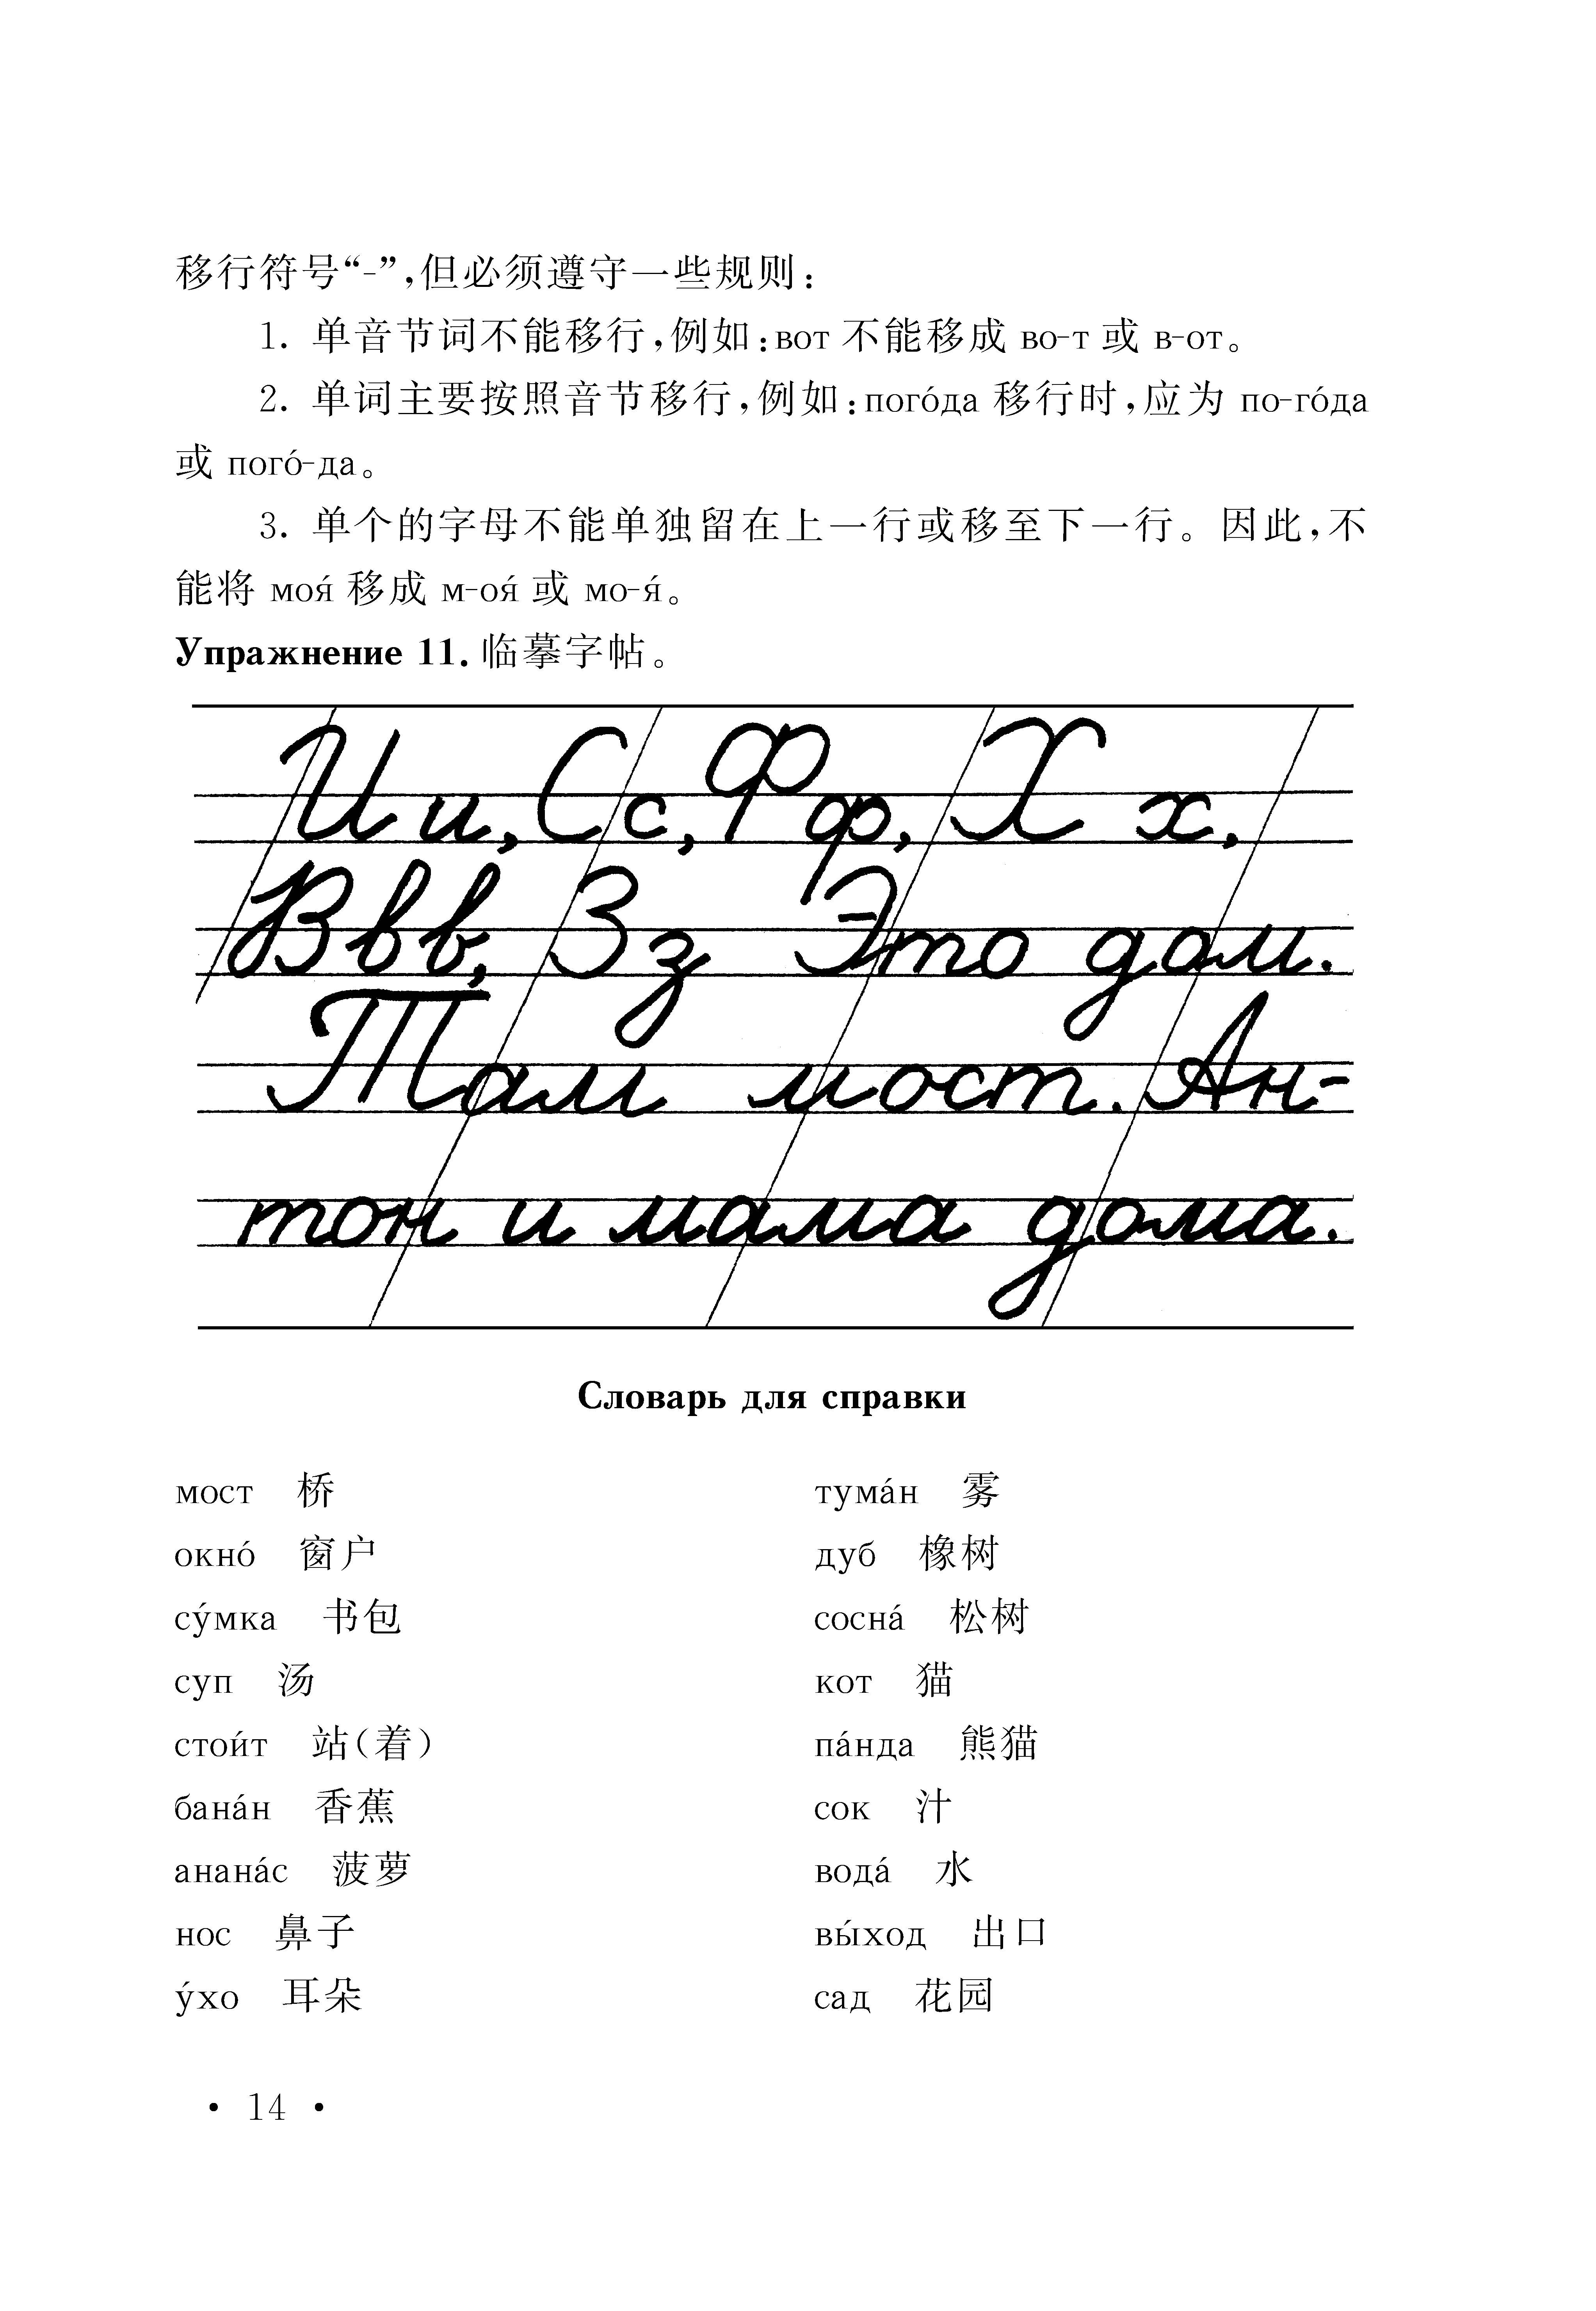 移行符号“-”,但必须遵守一些规则:
1. 单音节词不能移行,例如:вот 不能移成 во-т 或 в-от。
2. 单词主要按照音节移行,例如:пого́да 移行时,应为 по-го́да
或 пого́-да。
3. 单个的字母不能单独留在上一行或移至下一行。因此,不
能将 моя́ 移成 м-оя́ 或 мо-я́。
Упражнение 11. 临摹字帖。
И и, С с, Ф ф, Х х,
В в в, З з Это дом.
Там мост. Ан-
тон и мама дома.
Словарь для справки
мост 桥
окно́ 窗户
су́мка 书包
суп 汤
стои́т 站(着)
бана́н 香蕉
анана́с 菠萝
нос 鼻子
у́хо 耳朵
тума́н 雾
дуб 橡树
сосна́ 松树
кот 猫
па́нда 熊猫
сок 汁
вода́ 水
вы́ход 出口
сад 花园
· 14 ·